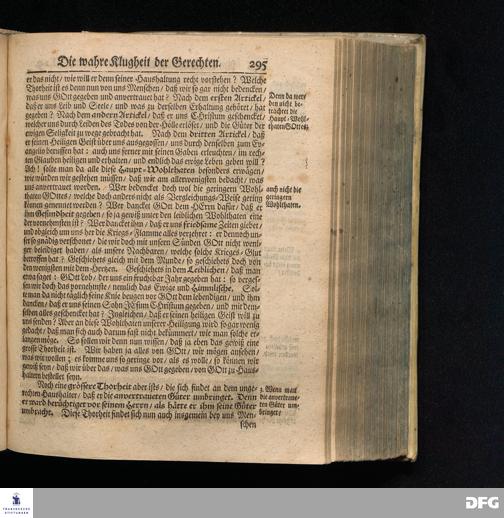 Die wahre Klugheit der Gerechten. 295
er das nicht / wie will er denn seiner Haushaltung recht vorstehen? Welche
Thorheit ist es denn nun von uns Menschen / daß wir so gar nicht bedencken /
was uns GOtt gegeben und anvertrauet hat? Nach dem ersten Artickel /
daß er uns Leib und Seele / und was zu derselben Erhaltung gehöret / hat
gegeben? Nach dem andern Artickel / daß er uns CHristum geschencket /
welcher uns durch Leiden des Todes von der Hölle erlöset / und die Güter der
ewigen Seligkeit zu wege gebracht hat. Nach dem dritten Artickel / daß
er seinen Heiligen Geist über uns ausgegossen / uns durch denselben zum Ev-
angelio beruffen hat; auch uns ferner mit seinen Gaben erleuchten / im rech-
ten Glauben heiligen und erhalten / und endlich das ewige Leben geben will?
Ach! solte man da alle diese Haupt-Wohlthaten besonders erwägen /
wie würden wir gestehen müssen / daß wir am allerwenigsten bedacht / was
uns anvertrauet worden. Wer bedencket doch wol die geringern Wohl-
thaten GOttes / welche doch anders nicht als Vergleichungs-Weise gering
können genennet werden? Wer dancket GOtt dem HErrn dafür / daß er
ihm Gesundheit gegeben / so ja gewiß unter den leiblichen Wohlthaten eine
der vornehmsten ist? Wer dancket ihm / daß er uns friedsame Zeiten giebet /
und obgleich um uns her die Krieges-Flamme alles verzehret: er dennoch un-
ser so gnädig verschonet / die wir doch mit unsern Sünden GOtt nicht weni-
ger beleidiget haben / als unsere Nachbaren / welche solche Krieges-Glut
betroffen hat? Geschiehets gleich mit dem Munde / so geschiehets doch von
den wenigsten mit dem Hertzen. Geschiehets im Leiblichen / daß man
etwa saget: GOtt Lob / der uns ein fruchtbar Jahr gegeben hat: so verges-
sen wir doch das vornehmste / nemlich das Ewige und Himmlische. Sol-
te man da nicht täglich seine Knie beugen vor GOtt dem lebendigen / und ihm
dancken / daß er uns seinen Sohn JEsum Christum gegeben / und mit dem-
selben alles geschencket hat? Ingleichen / daß er seinen heiligen Geist will zu
uns senden? Aber an diese Wohlthaten unserer Heiligung wird so gar wenig
gedacht / daß man sich auch darum fast nicht bekümmert / wie man solche er-
langen möge. So sollen wir denn nun wissen / daß ja eben das gewiß eine
grosse Thorheit ist. Wir haben ja alles von GOtt / wir mögen ansehen /
was wir wollen; es komme uns so geringe vor / als es wolle / so können wir
gewiß seyn / daß wir über das / was uns von GOtt gegeben / von GOtt zu Haus-
haltern bestellet seyn.
Noch eine grössere Thorheit aber ists / die sich findet an dem unge-
rechten Haushalter / daß er die anvertraueten Güter umbringet. Denn
er ward berüchtiget vor seinem Herrn / als hätte er ihm seine Güter
umbracht. Diese Thorheit findet sich nun auch insgemein bey uns Men-
schen
Denn da wer-
den nicht be-
trachtet die
Haupt-Wohl-
thaten GOttes;
auch nicht die
geringern
Wohlthaten.
2. Wenn man
die anvertraue-
ten Güter um-
bringet;
FRANCKESCHE
STIFTUNGEN
DFG